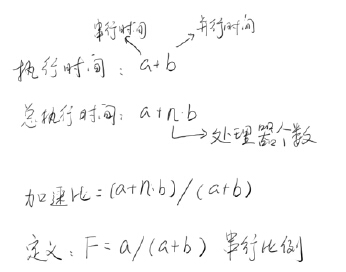 串行时间 并行时间
执行时间：a+b
总执行时间：a+n·b
处理器个数
加速比=(a+n·b)/(a+b)
定义：F=a/(a+b) 串行比例